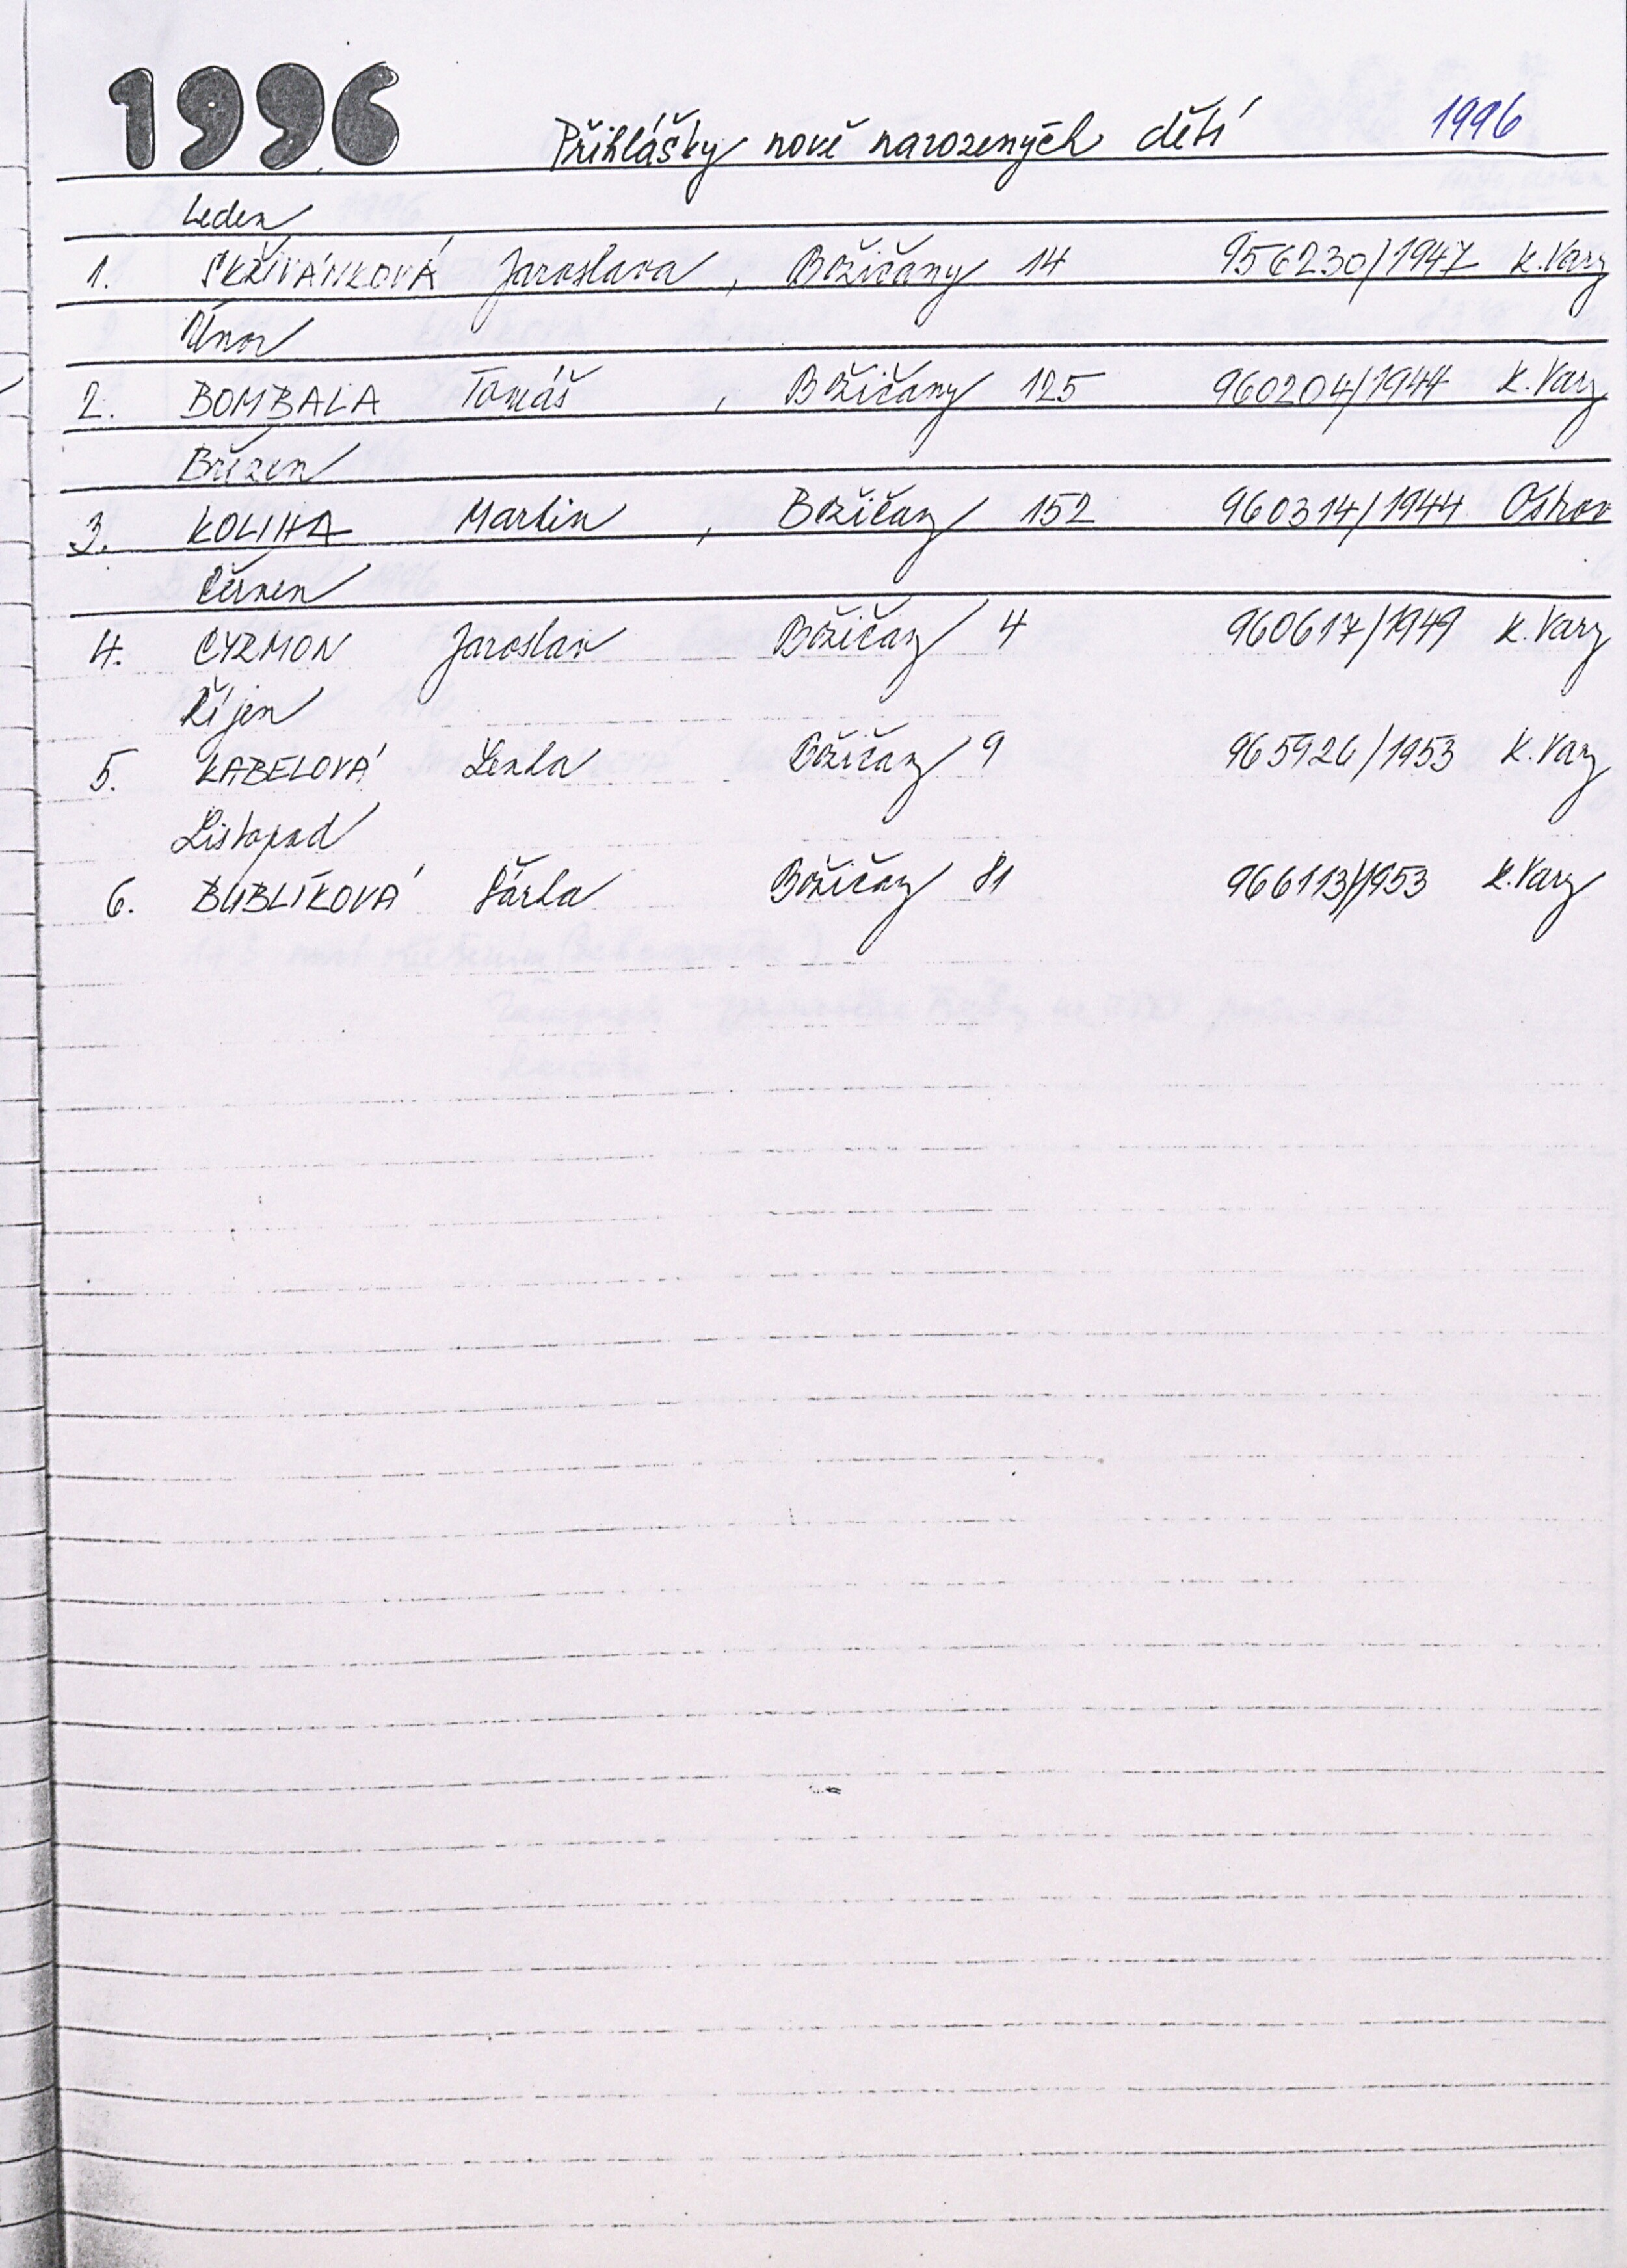 1996 Přihlášky nově narozených dětí 1996
Leden
1. SKŘIVÁNKOVÁ Jaroslava, Božičany 14 956230/1947 K.Vary
Únor
2. BOMBALA Tomáš, Božičany 125 960204/1944 K.Vary
Březen
3. KOLIHA Martin, Božičany 152 960314/1944 Ostrov
Červen
4. CYRMON Jaroslav Božičany 4 960617/1949 K.Vary
Říjen
5. KABELOVÁ Lenka Božičany 9 965926/1953 K.Vary
Listopad
6. BUBLÍKOVÁ Šárka Božičany 81 966113/1953 K.Vary